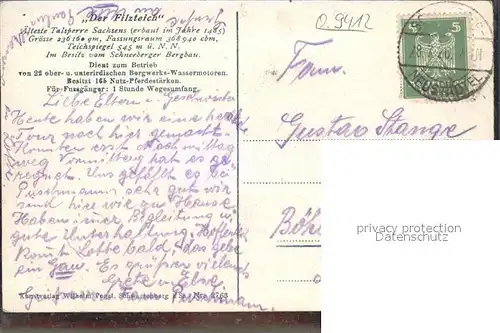 „Der Filzteich"
Älteste Talsperre Sachsens (erbaut im Jahre 1485)
Grösse 236 160 qm, Fassungsraum 368 940 cbm,
Teichspiegel 545 m ü. N. N.
Im Besitz vom Schneeberger Bergbau.
Dient zum Betrieb
von 22 ober- u. unterirdischen Bergwerks-Wassermotoren.
Besitzt 165 Nutz-Pferdestärken.
Für Fussgänger: 1 Stunde Wegesumfang.
Liebe Eltern u. Geschwister
Heute haben wir eine
Tour nach hier gemacht.
Konnten erst Nachmittag
weg Vormittag hat es ge
regnet. Uns gefällt es bei
Puschmann sehr gut wir
sind hier wie zu Hause
Haben immer Begleitung u.
gute Unterhaltung. Hoffentl.
kommt Lotte bald, das gebe
ein Gaus. Es grüßen vielmals
Grete u. Else
Puschmann
Kunstverlag Wilhelm Vogel, Schwarzenberg i. Sa. Nr. 2763
O.9412
Fam.
Gustav Stange
Böh
5
NEUSTÄDTEL
privacy protection
Datenschutz